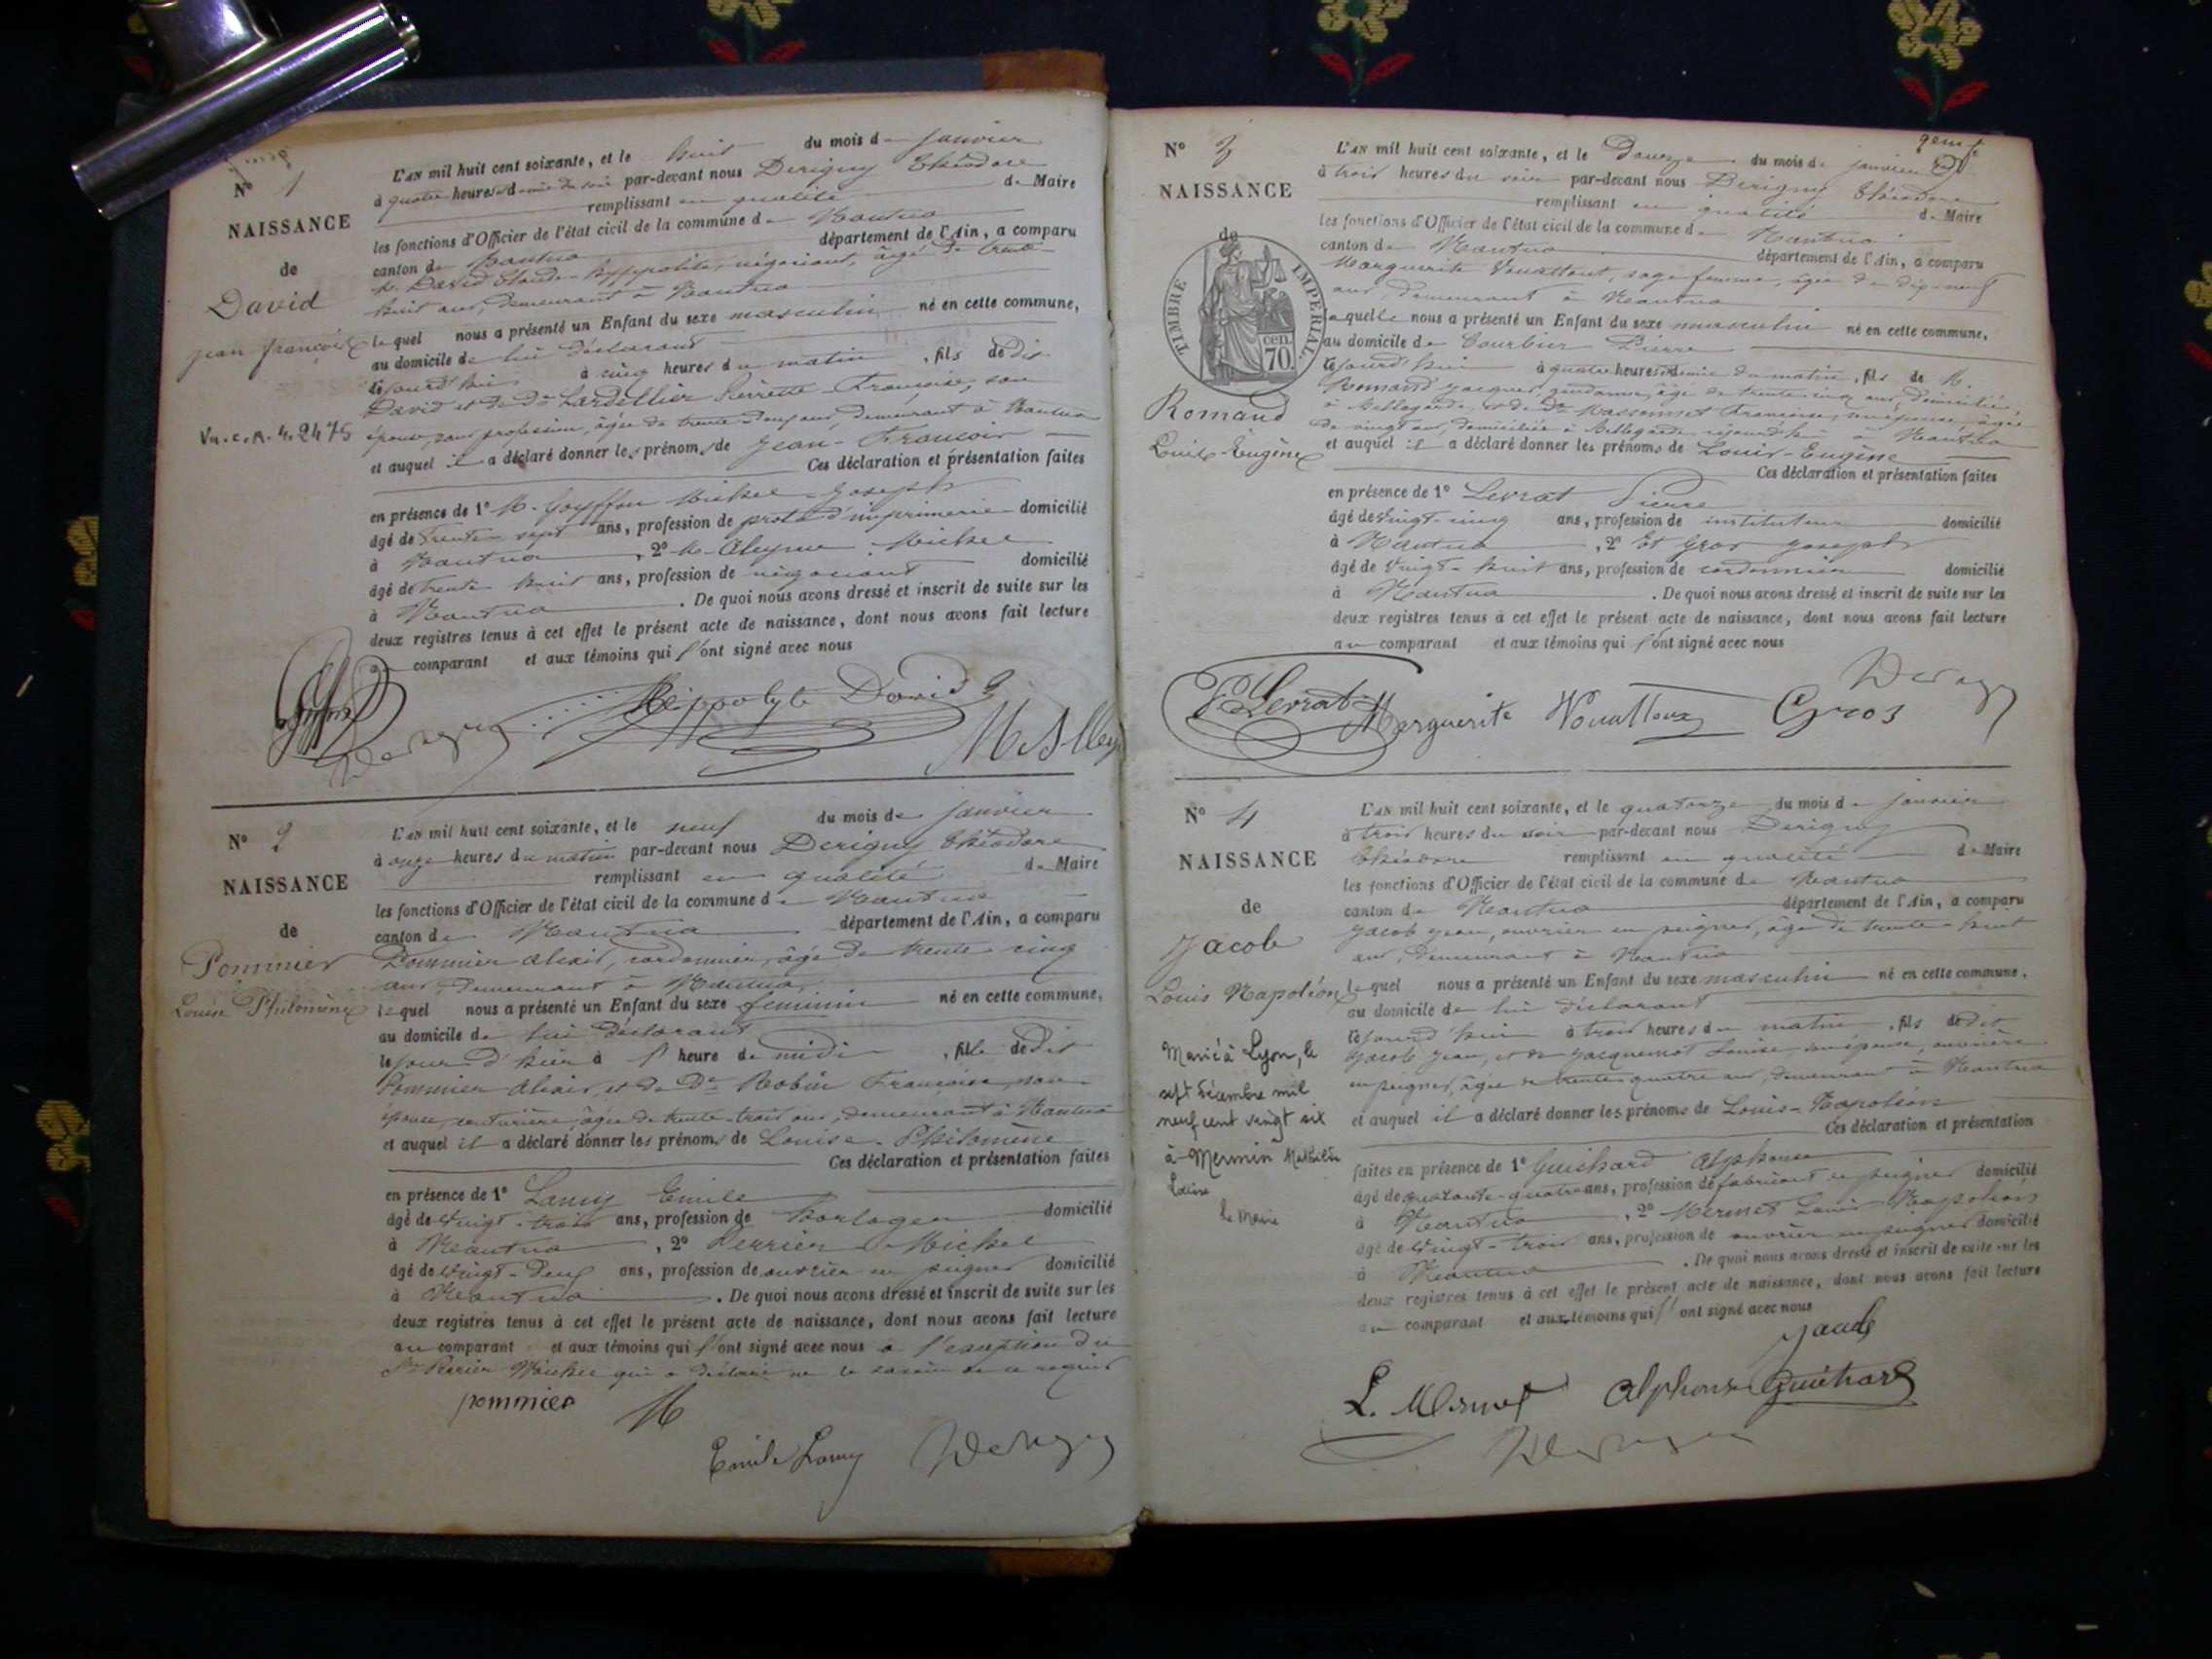 N° 1
NAISSANCE
de
David
Jean François
Vu. c. n. 4. 2475
L'AN mil huit cent soixante, et le huit du mois de Janvier
à quatre heures et demie du soir par-devant nous Derigny Théodore
remplissant en qualité de Maire
les fonctions d'Officier de l'état civil de la commune de Nantua
canton de Nantua département de l'Ain, a comparu
M. David Claude Hyppolite, négociant, âgé de trente
huit ans, demeurant à Nantua
lequel nous a présenté un Enfant du sexe masculin né en cette commune,
au domicile de lui déclarant
cejourd'hui à cinq heures du matin, fils de dit
David et de De Lardellier Pierrette Françoise, son
épouse, sans profession, âgée de trente deux ans, demeurant à Nantua
et auquel il a déclaré donner les prénoms de Jean-François
Ces déclaration et présentation faites
en présence de 1° M. Goyffon Michel Joseph
âgé de trente sept ans, profession de prote d'imprimerie domicilié
à Nantua, 2° M. Alleyne Michel
âgé de trente huit ans, profession de négociant domicilié
à Nantua. De quoi nous avons dressé et inscrit de suite sur les
deux registres tenus à cet effet le présent acte de naissance, dont nous avons fait lecture
au comparant et aux témoins qui l'ont signé avec nous
Derigny Hippolyte David M. Alley
N° 2
NAISSANCE
de
Pommier
Louise Philomène
L'AN mil huit cent soixante, et le neuf du mois de Janvier
à onze heures du matin par-devant nous Derigny Théodore
remplissant en qualité de Maire
les fonctions d'Officier de l'état civil de la commune de Nantua
canton de Nantua département de l'Ain, a comparu
Pommier Alexis, cordonnier, âgé de trente cinq
ans, demeurant à Nantua,
lequel nous a présenté un Enfant du sexe féminin né en cette commune,
au domicile de lui déclarant
le jour d'hier à l'heure de midi, fille de dit
Pommier Alexis, et de De Robin Françoise, son
épouse, couturière, âgée de trente-trois ans, demeurant à Nantua
et auquel il a déclaré donner les prénoms de Louise-Philomène
Ces déclaration et présentation faites
en présence de 1° Lamy Emile
âgé de vingt-trois ans, profession de horloger domicilié
à Nantua, 2° Perrier Michel
âgé de vingt-deux ans, profession de ouvrier en peignes domicilié
à Nantua. De quoi nous avons dressé et inscrit de suite sur les
deux registres tenus à cet effet le présent acte de naissance, dont nous avons fait lecture
au comparant et aux témoins qui l'ont signé avec nous à l'exception du
Sr Perrier Michel qui a déclaré ne le savoir de ce requis
pommier
Emile Lamy Derigny
N° 3
NAISSANCE
de
TIMBRE IMPÉRIAL.
cen. 70.
Romand
Louis-Eugène
L'AN mil huit cent soixante, et le Douze du mois de janvier
à trois heures du soir par-devant nous Derigny Théodore
remplissant en qualité de Maire
les fonctions d'Officier de l'état civil de la commune de Nantua
canton de Nantua département de l'Ain, a comparu
Marguerite Vouattoux, sage femme, âgée de dix-neuf
ans, demeurant à Nantua
laquelle nous a présenté un Enfant du sexe masculin né en cette commune,
au domicile de Courbier Pierre
cejourd'hui à quatre heures et demie du matin, fils de M.
Romand Jacques, gendarme, âgé de trente cinq ans, domicilié
à Bellegarde, et de De Massonnet Françoise, son épouse, âgée
de vingt ans, domiciliée à Bellegarde, à Nantua
et auquel il a déclaré donner les prénoms de Louis-Eugène
Ces déclaration et présentation faites
en présence de 1° Levrat Pierre
âgé de vingt-cinq ans, profession de instituteur domicilié
à Nantua, 2° Et Gros Joseph
âgé de vingt-huit ans, profession de cordonnier domicilié
à Nantua. De quoi nous avons dressé et inscrit de suite sur les
deux registres tenus à cet effet le présent acte de naissance, dont nous avons fait lecture
au comparant et aux témoins qui l'ont signé avec nous
P. Levrat Marguerite Vouattoux Gros Derigny
N° 4
NAISSANCE
de
Jacob
Louis Napoléon
Marié à Lyon, le
sept Décembre mil
neuf cent vingt six
à Mermin Mathilde
Louise
Le Maire
L'AN mil huit cent soixante, et le quatorze du mois de janvier
à trois heures du soir par-devant nous Derigny
Théodore remplissant en qualité de Maire
les fonctions d'Officier de l'état civil de la commune de Nantua
canton de Nantua département de l'Ain, a comparu
Jacob Jean, ouvrier en peignes, âgé de trente huit
ans, demeurant à Nantua
lequel nous a présenté un Enfant du sexe masculin né en cette commune,
au domicile de lui déclarant
cejourd'hui à trois heures du matin, fils de dit
Jacob Jean, et de Jacquemot Louise, son épouse, ouvrière
en peignes, âgée de trente quatre ans, demeurant à Nantua
et auquel il a déclaré donner les prénoms de Louis-Napoléon
Ces déclaration et présentation
faites en présence de 1° Guichard Alphonse
âgé de quarante-quatre ans, profession de fabricant en peignes domicilié
à Nantua, 2° Mermet Louis Napoléon
âgé de vingt-trois ans, profession de ouvrier en peignes domicilié
à Nantua. De quoi nous avons dressé et inscrit de suite sur les
deux registres tenus à cet effet le présent acte de naissance, dont nous avons fait lecture
au comparant et aux témoins qui l'ont signé avec nous
L. Mermet Alphonse Guichard
Derigny